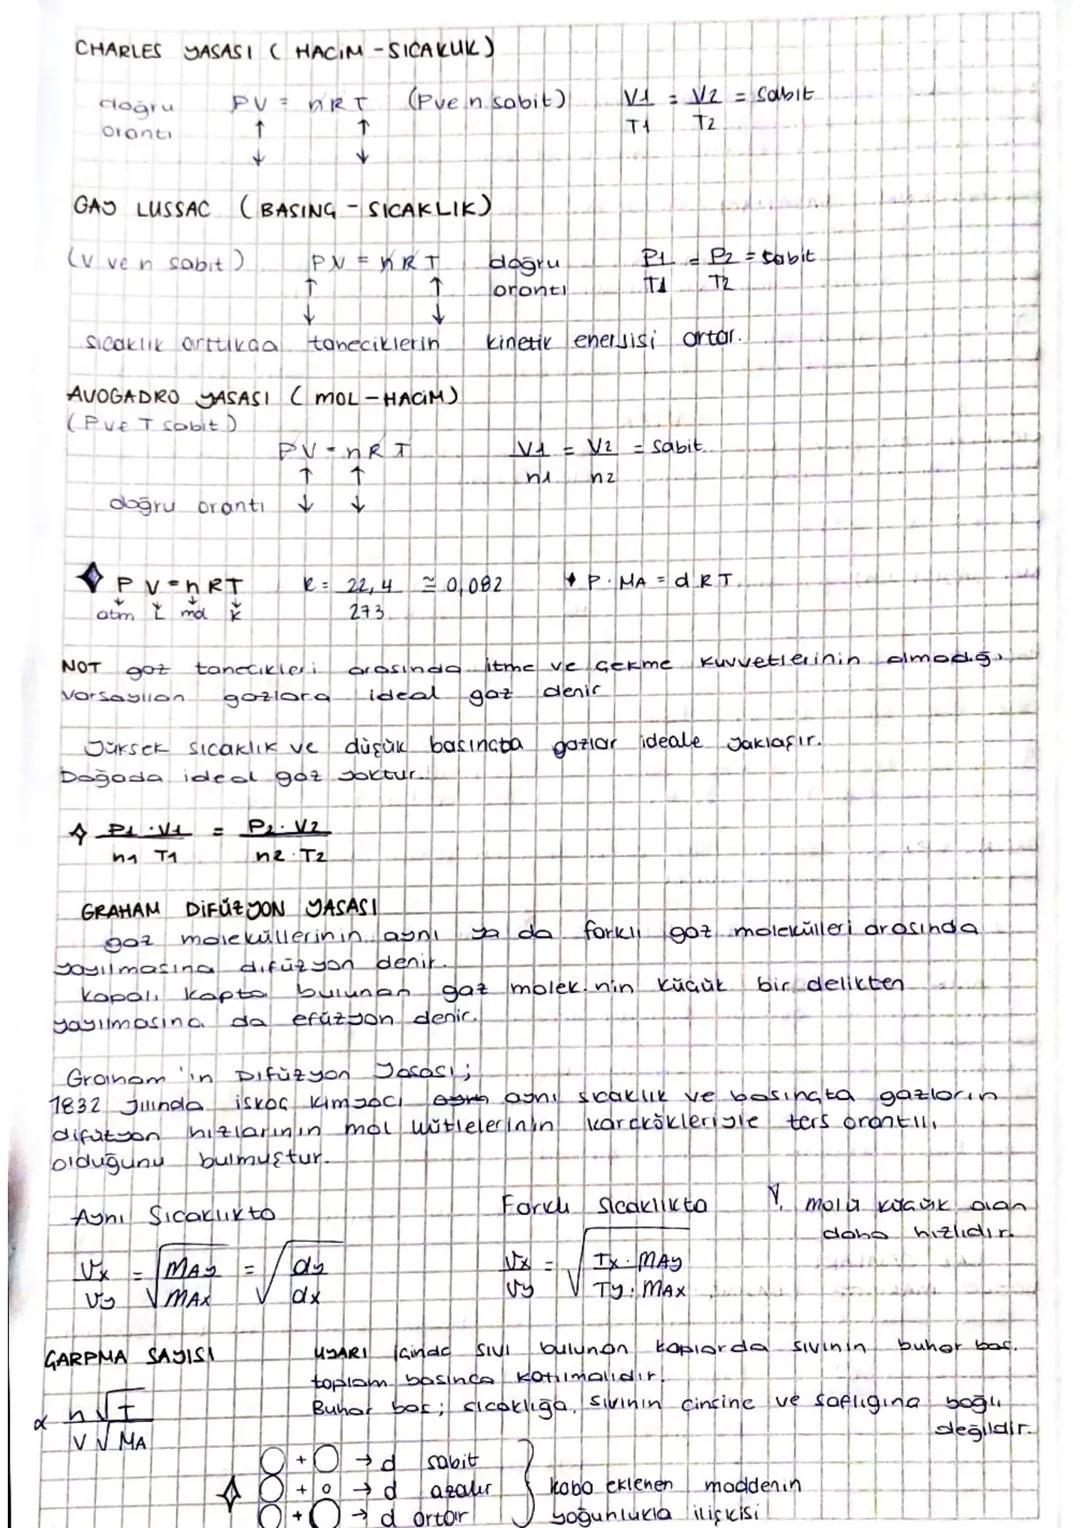 CHARLES YASASI ( HACİM - SICAKLIK )
doğru orantı PV = nRT (P ve n sabit) V1 = V2 = Sabit
T1 T2
GAY LUSSAC ( BASINÇ - SICAKLIK )
(V ve n sabit) PV = nRT doğru orantı P1 = P2 = sabit
T1 T2
Sıcaklık arttıkça taneciklerin kinetik enerjisi artar.
AVOGADRO YASASI ( MOL - HACİM )
( P ve T sabit )
PV = nRT V1 = V2 = Sabit
n1 n2
doğru orantı
PV = nRT R = 22,4 ≅ 0,082 P . MA = d RT
atm L mol K 273
NOT gaz tanecikleri arasında itme ve çekme kuvvetlerinin olmadığı
varsayılan gazlara ideal gaz denir
Yüksek sıcaklık ve düşük basınçta gazlar ideale yaklaşır.
Doğada ideal gaz yoktur.
P1 . V1 = P2 . V2
n1 T1 n2 . T2
GRAHAM DİFÜZYON YASASI
gaz moleküllerinin aynı ya da farklı gaz molekülleri arasında
yayılmasına difüzyon denir.
Kapalı kapta bulunan gaz molek. nin küçük bir delikten
yayılmasına da efüzyon denir.
Graham'ın Difüzyon Yasası;
1832 yılında iskoç kimyacı aynı sıcaklık ve basınçta gazların
difüzyon hızlarının mol kütlelerinin karekökleriyle ters orantılı
olduğunu bulmuştur.
Aynı Sıcaklıkta Farklı Sıcaklıkta mola küçük olan
daha hızlıdır.
Vx = √MAy = √dy Vx = √Tx . MAy
Vy √MAx √dx Vy √Ty . MAx
ÇARPMA SAYISI UYARI İçinde sıvı bulunan kaplarda sıvının buhar bas.
toplam basınca katılmalıdır.
α n√T Buhar bas; sıcaklığa, sıvının cinsine ve saflığına bağlı
V√MA değildir.
+ → d sabit
+ → d azalır kaba eklenen maddenin
+ → d artar yoğunlukla ilişkisi